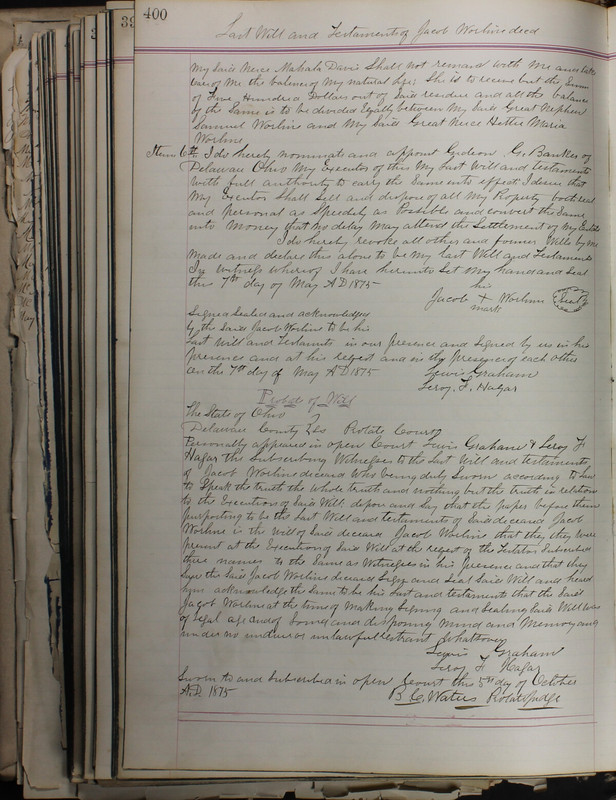 400
Last Will and Testament of Jacob Worline decd
My Said Neice Mahala Davis Shall not remain with Me and take
Care of Me the balance of My natural life; She is to receive but the Sum
of Five Hundred Dollars out of Said residue and all the balance
of the Same is to be divided Equally between My Said Great Nephew
Samuel Worline and My Said Great Neice Hettie Maria
Worline
Item 6th I do hereby nominate and appoint Gideon G. Banker of
Delaware Ohio My Executor of this My Last Will and testament
with full authority to carry the Same into effect I desire that
My Executor Shall Sell and dispose of all My Property both real
and personal as Speedily as Possible and convert the Same
into Money that no delay May attend the Settlement of My Estate
I do hereby revoke all other and former Wills by me
Made and declare this alone to be My last Will and Testament
In Witness whereof I have hereunto Set My hand and Seal
this 7th day of May AD 1875
his
Jacob + Worline Seal
mark
Signed Sealed and acknowledged
by the Said Jacob Worline to be his
Last Will and testament in our presence and Signed by us in his
presence and at his request and in the presence of each other
on the 7th day of May AD 1875
Lewis Graham
Leroy F. Hagar
Probate of Will
The State of Ohio
Delaware County Ss Probate Court
Personally appeared in open Court Lewis Graham & Leroy F.
Hagar the Subscribing Witnesses to the Last Will and testament
of Jacob Worline deceased Who being duly Sworn according to law
to Speak the truth the whole truth and nothing but the truth in relation
to the Execution of Said Will, depose and Say that the paper before them
purporting to be the Last Will and testament of Said deceased Jacob
Worline is the Will of Said deceased Jacob Worline that they they were
present at the Execution of Said Will at the request of the testator Subscribed
their names to the Same as Witnesses in his presence and that they
Saw the Said Jacob Worline deceased Sign and Seal Said Will and heard
him acknowledge the Same to be his Last and testament that the Said
Jacob Worline at the time of Making Signing and Sealing Said Will was
of legal age and of Sound and disposing Mind and Memory and
under no undue or unlawful restraint Whatsoever
Lewis Graham
Leroy F. Hagar
Sworn to and Subscribed in open Court this 5th day of October
A.D. 1875 B. C. Waters Probate Judge